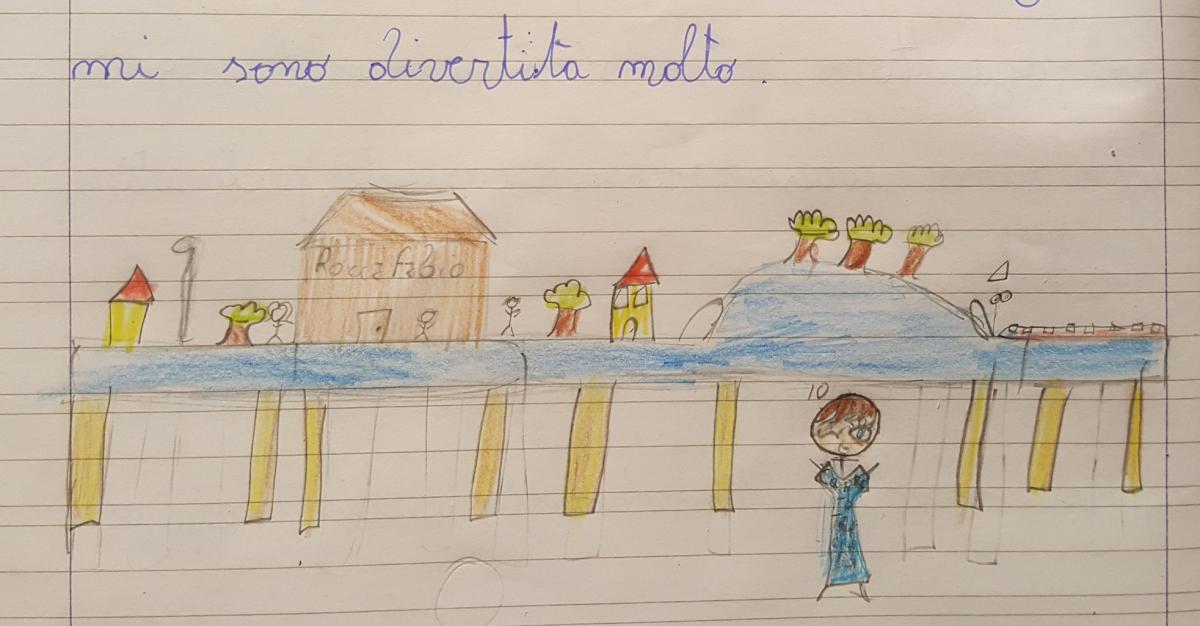 mi sono divertita molto.
Rocca Fabio
10